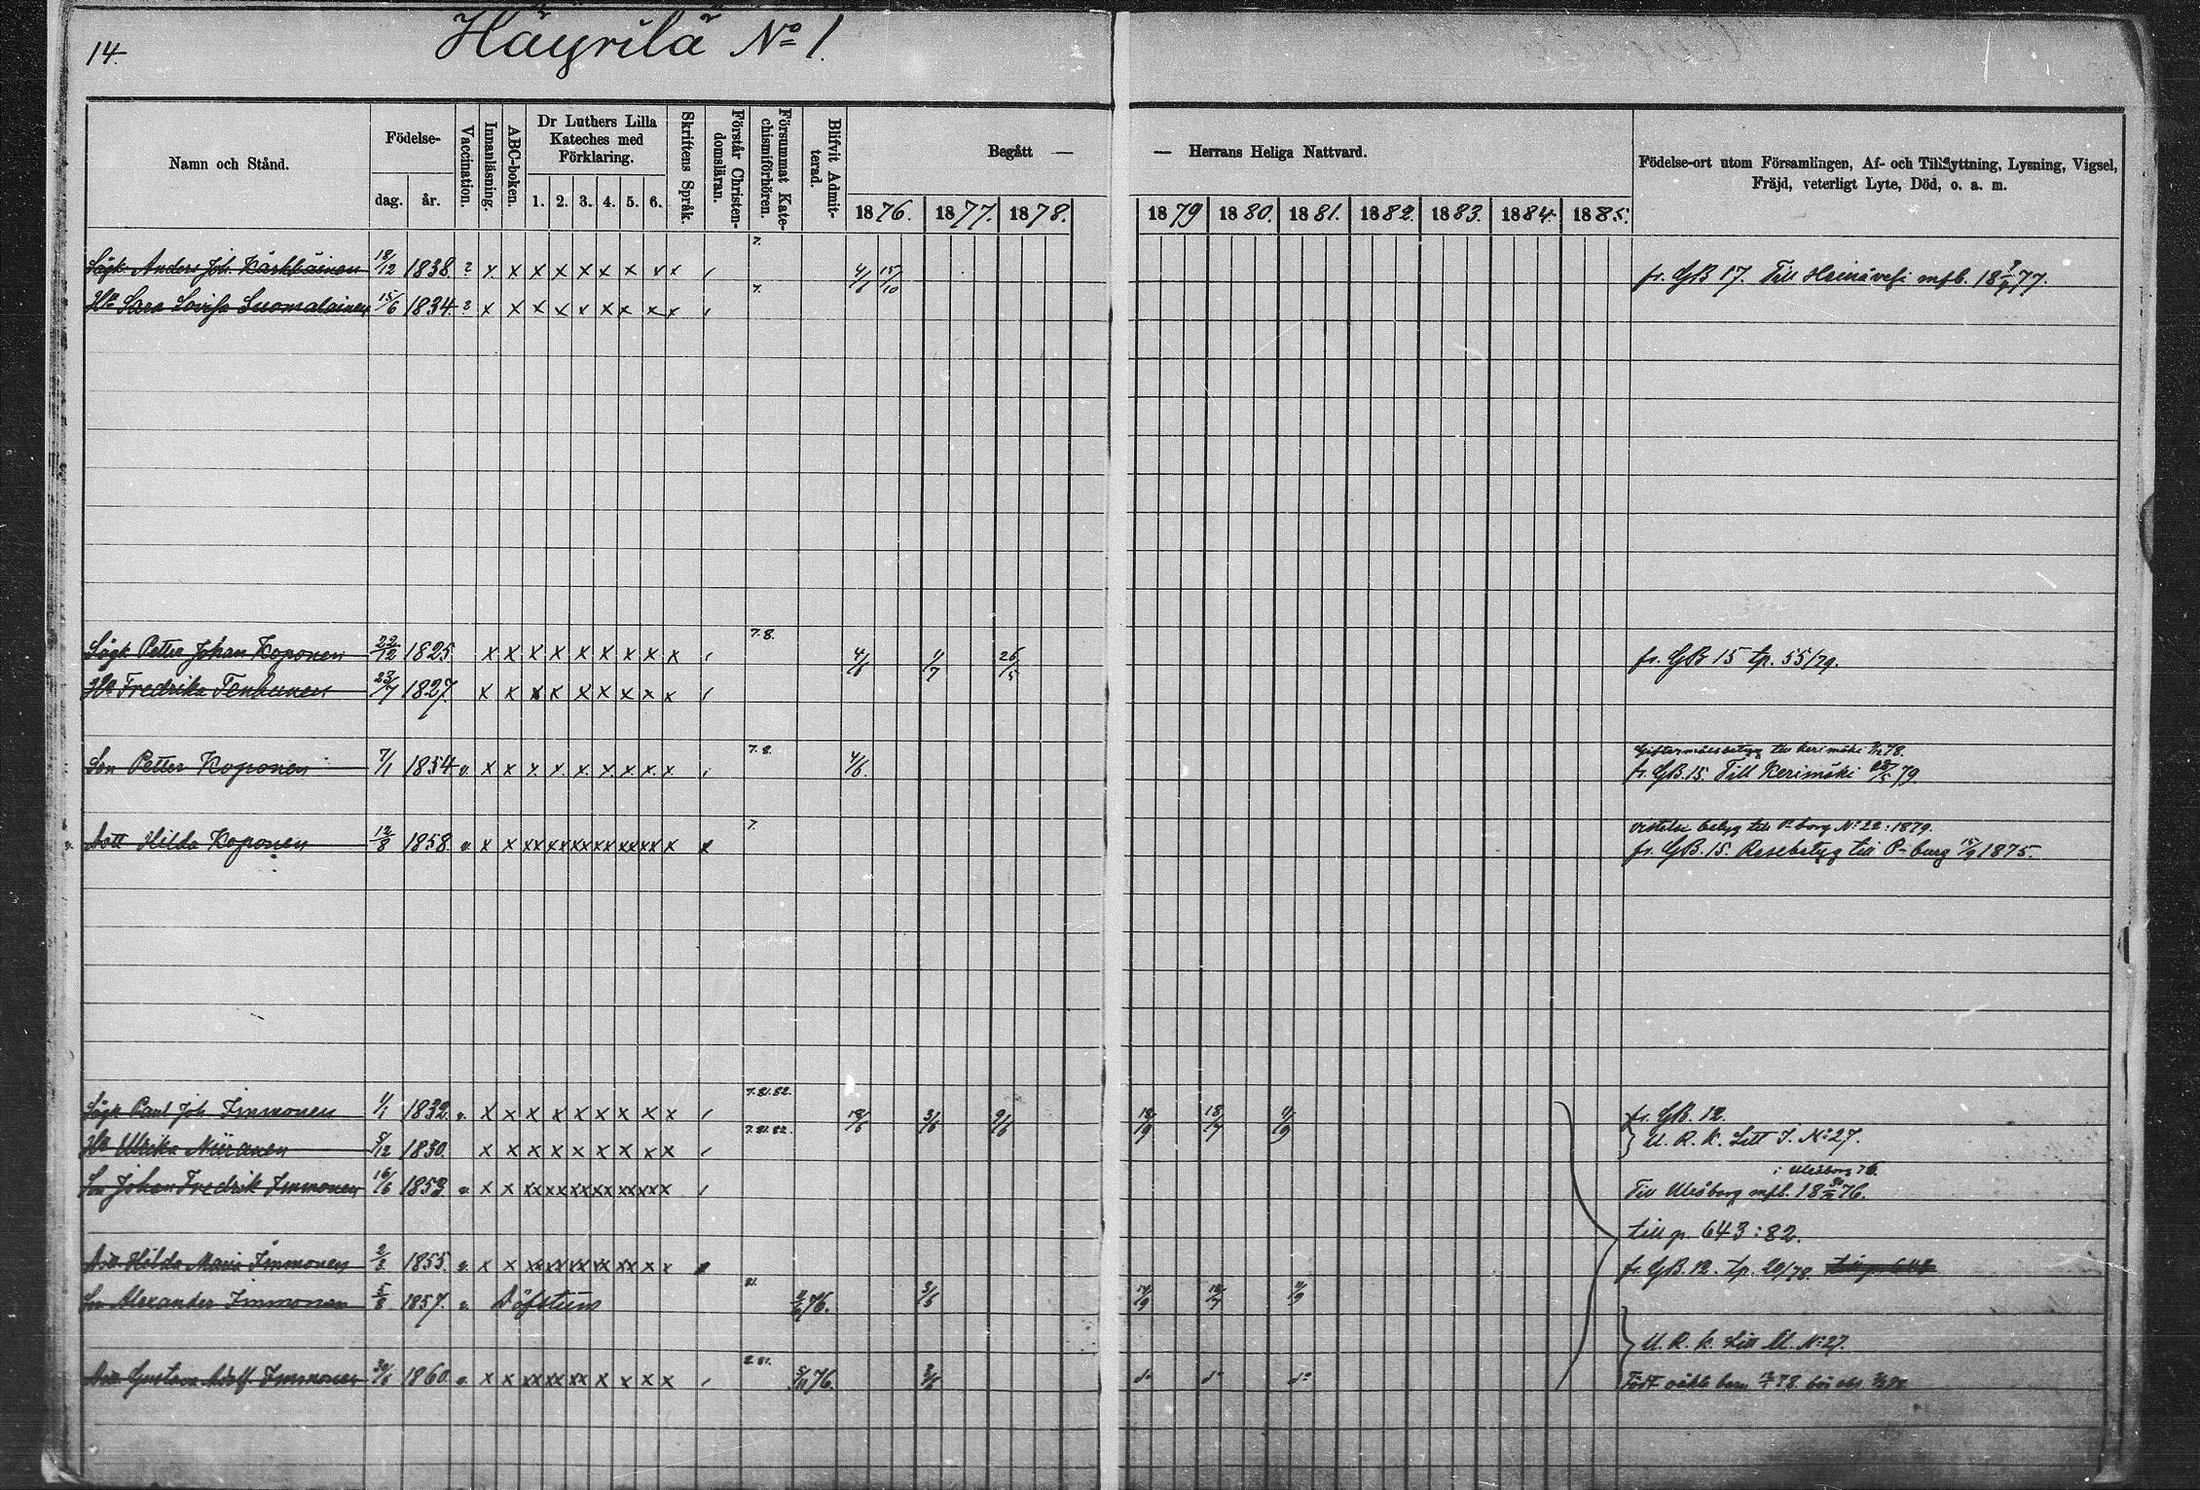 14.
Häyrilä No 1.
Namn och Stånd.
Födelse-
dag.
år.
Vaccination.
Innanläsning.
ABC-boken.
Dr Luthers Lilla
Kateches med
Förklaring.
1. 2. 3. 4. 5. 6.
Skriftens Språk.
Förstår Christen-
domsläran.
Försummat Kate-
chismiförhören.
Blifvit Admit-
terad.
Begått — — Herrans Heliga Nattvard.
1876. 1877. 1878. 1879 1880. 1881. 1882. 1883. 1884. 1885.
Födelse-ort utom Församlingen, Af- och Tillflyttning, Lysning, Vigsel,
Fräjd, veterligt Lyte, Död, o. a. m.
7.
Sågk. Anders Joh. Kärkkäinen 18/12 1838 ? x x x x x x x x x 4/6 15/10 fr. GB 17. Till Heinävesi mfb. 1877.
7.
Hu Sara Lovisa Suomalainen 15/6 1834 ? x x x x x x x x x
7.8.
Sågk Petter Johan Koponen 22/12 1825 x x x x x x x x x 4/6 1/7 26/5 fr. GB 15 tp. 55/79.
Hu Fredrika Tenhunen 23/7 1827. x x x x x x x x x
7.8.
Giftermålsbetyg till Kerimäki 78.
Son Petter Koponen 7/1 1854 v. x x x x x x x x x 4/6. fr. GB. 15. Till Kerimäki 79
7.
betyg till P-borg No 22:1879.
Dott Hilda Koponen 12/8 1858 v. x x xx xx xx xx xx xx x x fr. GB. 15. Resebetyg till P-burg 1875.
7.81.82.
Sågk Paul Joh Immonen 1/1 1832 v. x x x x x x x x x 18/6 3/6 9/6 18/9 18/7 11/9 fr. GB. 12.
7.81.82.
Hu Ulrika Miiranen 5/12 1830. x x x x x x x x x U. R. K. Litt I. No 27.
i Uleåborg 76.
Son Johan Fredrik Immonen 16/6 1853 v. x x xx xx xx xx xx xx x Till Uleåborg mfb. 1876.
till p. 643:82.
Dott. Hilda Maria Immonen 2/3 1855. v. x x xx xx xx xx xx x x fr. GB. 12. tp. 20/78. till p. 643
81.
Son Alexander Immonen 5/8 1857. v. Döfstum 76. 3/6 18/9 18/7 11/9
U. R. K. Litt M. No 27.
2.81.
Dott Gustava Adolf. Immonen 30/6 1860. v. x x xx xx xx x x x x 76. 3/6 do do do Född oäkta barn 78.